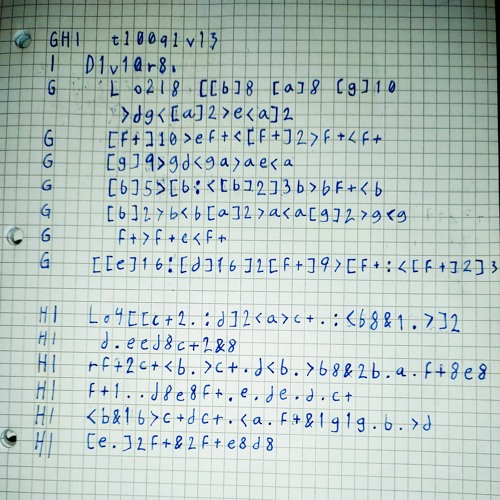 GHI t100q1v13
I D1v10r8.
G L o2l8 [[b]8 [a]8 [g]10
>dg<[a]2>e<a]2
G [f+]10>ef+<[f+]2>f+<f+
G [g]9>gd<ga>ae<a
G [b]5>[b:<[b]2]3b>bf+<b
G [b]2>b<b[a]2>a<a[g]2>g<g
G f+>f+e<f+
G [[e]16:[d]16]2[f+]9>[f+:<[f+]2]3
HI Lo4[[c+2.:d]2<a>c+.:<b8&1.>]2
HI d.eed8c+2&8
HI rf+2c+<b.>c+.d<b.>b8&2b.a.f+8e8
HI f+1..d8e8f+.e.de.d.c+
HI <b&1b>c+dc+.<a.f+&1g1g.b.>d
HI [e.]2f+&2f+e8d8